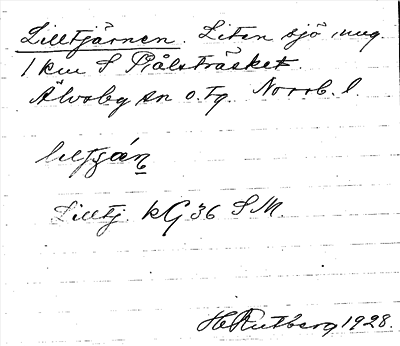 Lilltjärnen. Liten sjö, ung.
1 km S Pålsträsket.
Älvsby sn o. tg. Norrb. l.
liltján
Lilltj. kG 36 SM.
H Rutberg 1928.